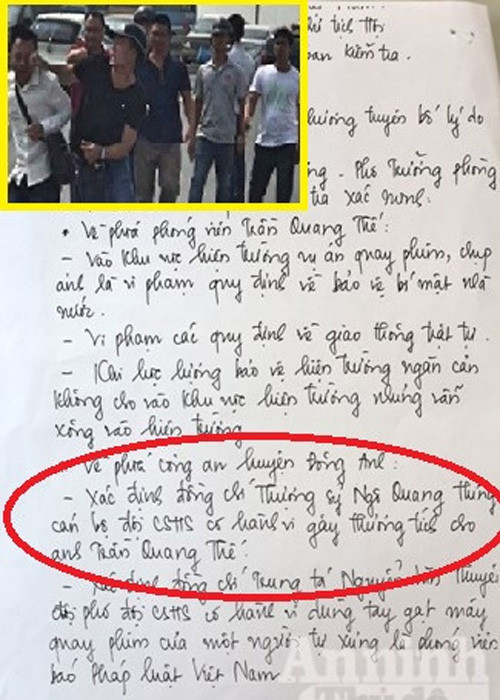 tịch Hội
ban kiểm tra.
tuyên bố lý do
- Phó Trưởng phòng
xác minh.
• Về phía phóng viên Trần Quang Thế:
- Vào khu vực hiện trường vụ án quay phim, chụp
ảnh là vi phạm quy định về bảo vệ bí mật nhà
nước.
- Vi phạm các quy định về giao thông trật tự.
- Khi lực lượng bảo vệ hiện trường ngăn cản
không cho vào khu vực hiện trường nhưng vẫn
xông vào hiện trường
Về phía công an huyện Đông Anh:
- Xác định đồng chí Thượng sỹ Ngô Quang Hưng
cán bộ đội CSHS có hành vi gây thương tích cho
anh Trần Quang Thế.
- Xác định đồng chí Trung tá Nguyễn Văn Thuyên
đội phó đội CSHS có hành vi dùng tay gạt máy
quay phim của một người tự xưng là phóng viên
báo Pháp luật Việt Nam
An ninh